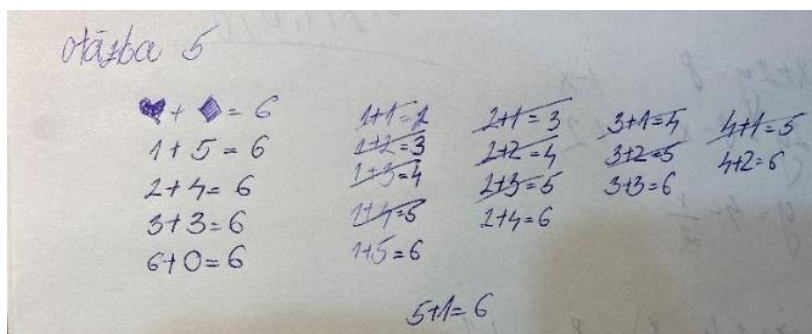 otázka 5
♥ + ◆ = 6
1 + 5 = 6
2 + 4 = 6
3 + 3 = 6
6 + 0 = 6
1+1=2
1+2=3
1+3=4
1+4=5
1+5=6
2+1=3
2+2=4
2+3=5
2+4=6
3+1=4
3+2=5
3+3=6
4+1=5
4+2=6
5+1=6